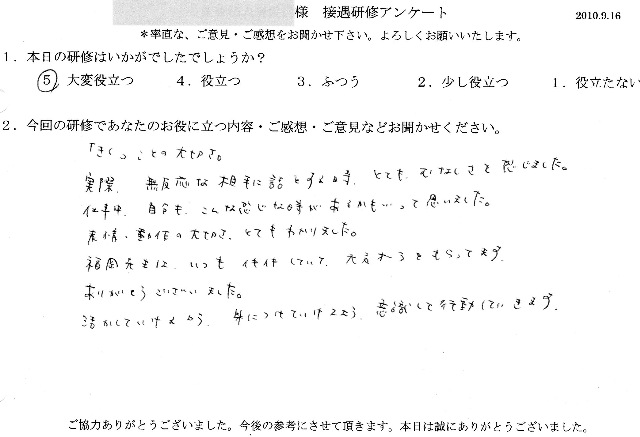 様 接遇研修アンケート 2010.9.16
＊率直な、ご意見・ご感想をお聞かせ下さい。よろしくお願いいたします。
1．本日の研修はいかがでしたでしょうか？
⑤ 大変役立つ 4．役立つ 3．ふつう 2．少し役立つ 1．役立たない
2．今回の研修であなたのお役に立つ内容・ご感想・ご意見などお聞かせください。
「きく」ことの大切さ。
実際、無反応な相手に話をする時、とても、むなしさを感じました。
仕事中、自分も、こんな感じな時があるかもって思いました。
表情・動作の大切さ、とてもわかりました。
福岡先生は、いつも イキイキしていて、元気をもらってます。
ありがとうございました。
活かしていけるよう、身につけていけるよう、意識して行動していきます。
ご協力ありがとうございました。今後の参考にさせて頂きます。本日は誠にありがとうございました。